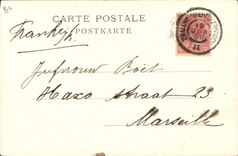 CARTE POSTALE
POSTKARTE
Frankrijk
Jufvrouw Boët
Haxo straat 23
Marseille